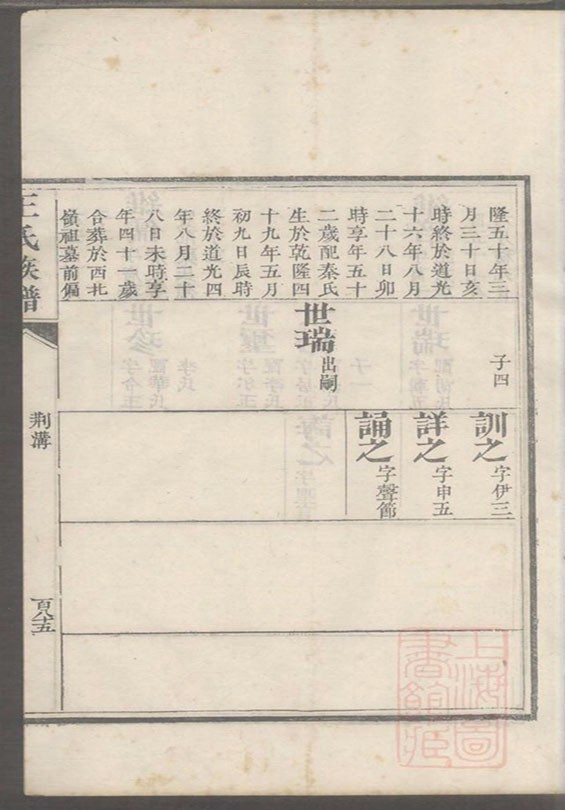 隆五十年三
月三十日亥
時終於道光
十六年八月
二十八日卯
時享年五十
二歲配秦氏
生於乾隆四
十九年五月
初九日辰時
終於道光四
年八月二十
八日未時享
年四十一歲
合葬於西北
嶺祖墓前偏
子四
世瑞出嗣
訓之字伊三
詳之字申五
誦之字聲節
王氏族譜
荆溝
百八十五
上海圖書館藏